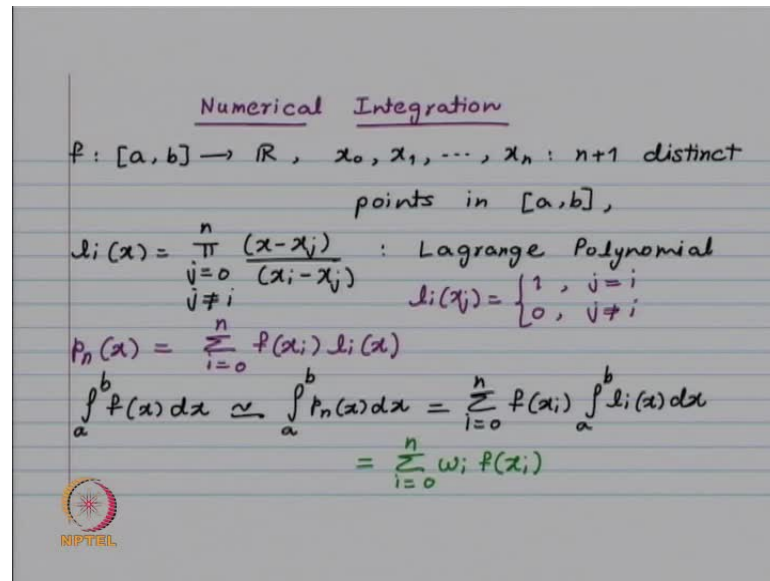 Numerical Integration
f : [a, b] → ℝ, x₀, x₁, ⋯, xₙ : n+1 distinct
points in [a, b],
lᵢ(x) = ∏_{j=0, j≠i}^{n} (x-xⱼ)/(xᵢ-xⱼ) : Lagrange Polynomial
lᵢ(xⱼ) = { 1, j = i
0, j ≠ i
pₙ(x) = ∑_{i=0}^{n} f(xᵢ) lᵢ(x)
∫_a^b f(x) dx ≃ ∫_a^b pₙ(x) dx = ∑_{i=0}^{n} f(xᵢ) ∫_a^b lᵢ(x) dx
= ∑_{i=0}^{n} ωᵢ f(xᵢ)
NPTEL